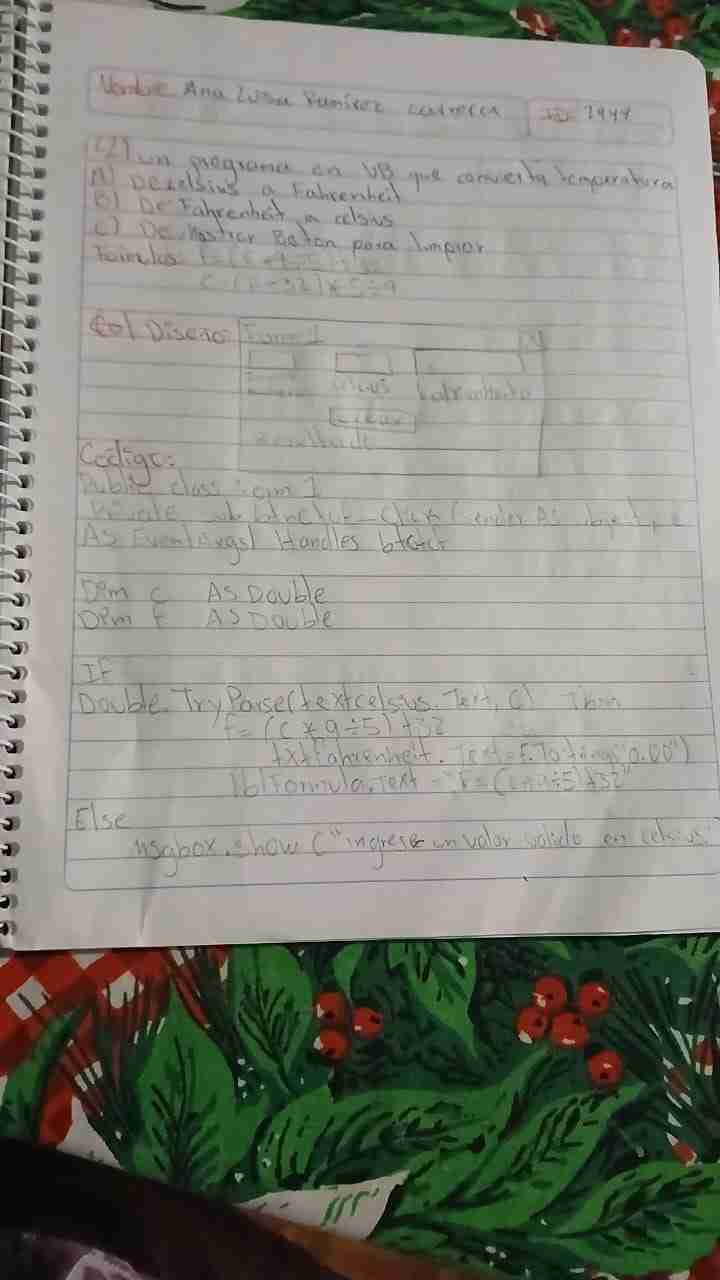 Nombre Ana Luisa Ramirez ID: 7944
(2) un programa en VB que convierta temperatura
A) De celsius a Fahrenheit
B) De Fahrenheit a celsius
C) De Mostrar Boton para limpiar
C (F-32) * 5 ÷ 9
Diseno Form 1
celsius Fahrenheite
resultado
Codigo:
Public class Form 1
Private sub Click (sender AS
AS EventArgs) Handles
Dim c AS Double
Dim F AS Double
IF
Double. TryParse(textcelsius. Text, C) Then
F= (C * 9 ÷ 5) +32
txtFahrenheit. Text= F.ToString("0.00")
lblFormula.Text = "F = (C * 9 ÷ 5) +32"
Else
Msgbox.show ("ingrese un valor valido en celsius"